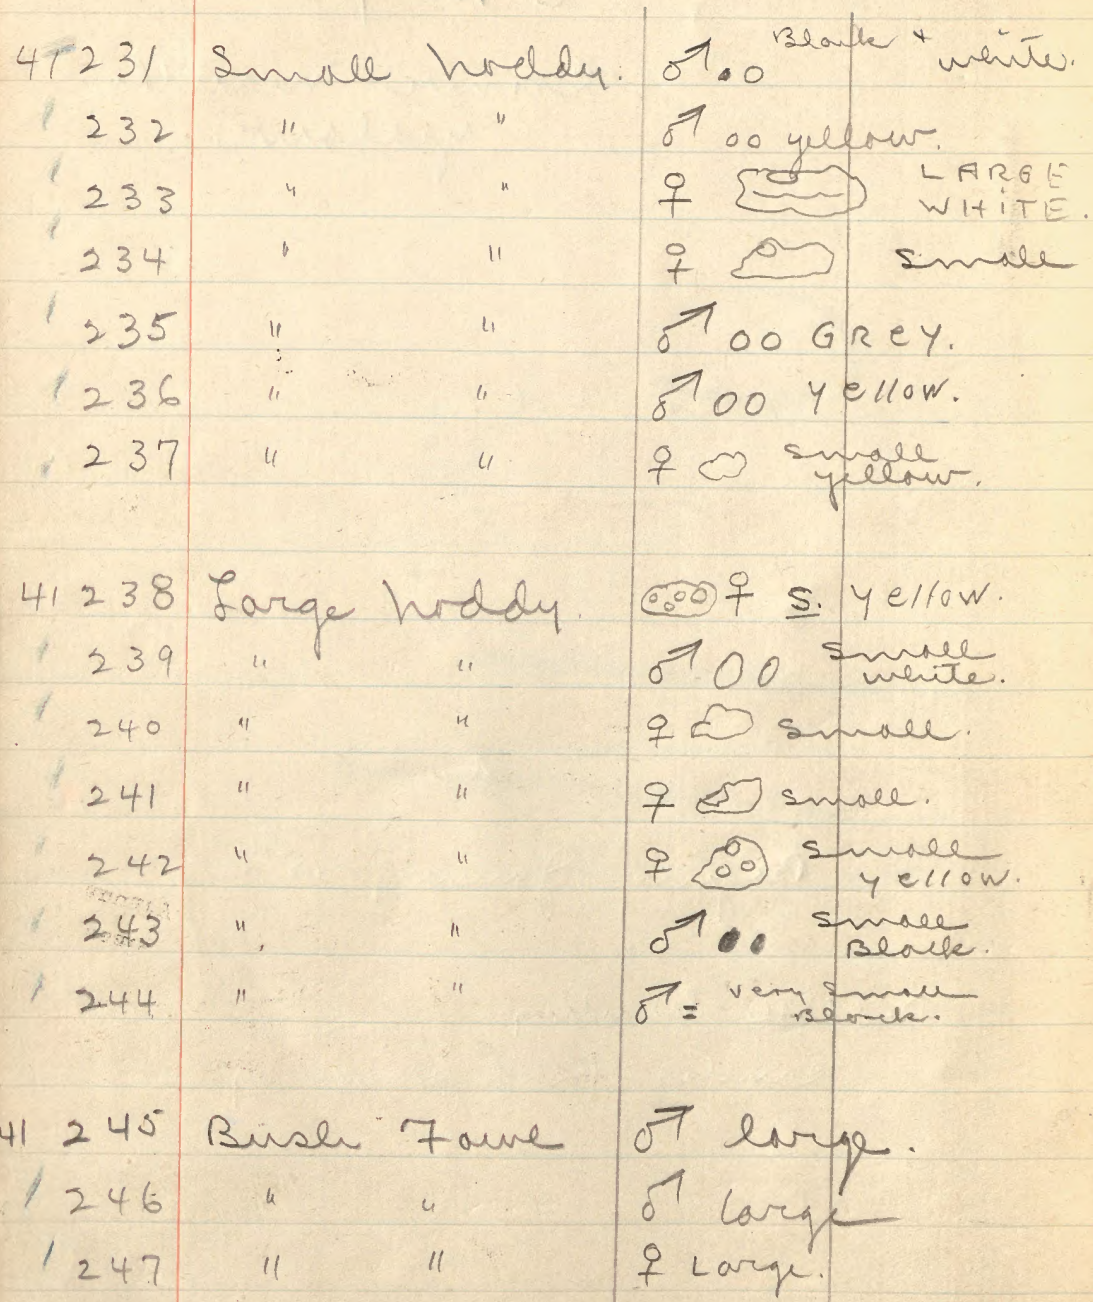 41 231 Small Noddy. ♂ Black + white.
232 " " ♂ yellow.
233 " " ♀ LARGE WHiTE.
234 " " ♀ Small
235 " " ♂ GREY.
236 " " ♂ yellow.
237 " " ♀ small yellow.
41 238 Large Noddy. ♀ S. yellow.
239 " " ♂ Small white.
240 " " ♀ Small.
241 " " ♀ small.
242 " " ♀ Small yellow.
243 " " ♂ Small Black.
244 " " ♂ = very small Black.
41 245 Bush Fowl ♂ large.
246 " " ♂ large
247 " " ♀ Large.